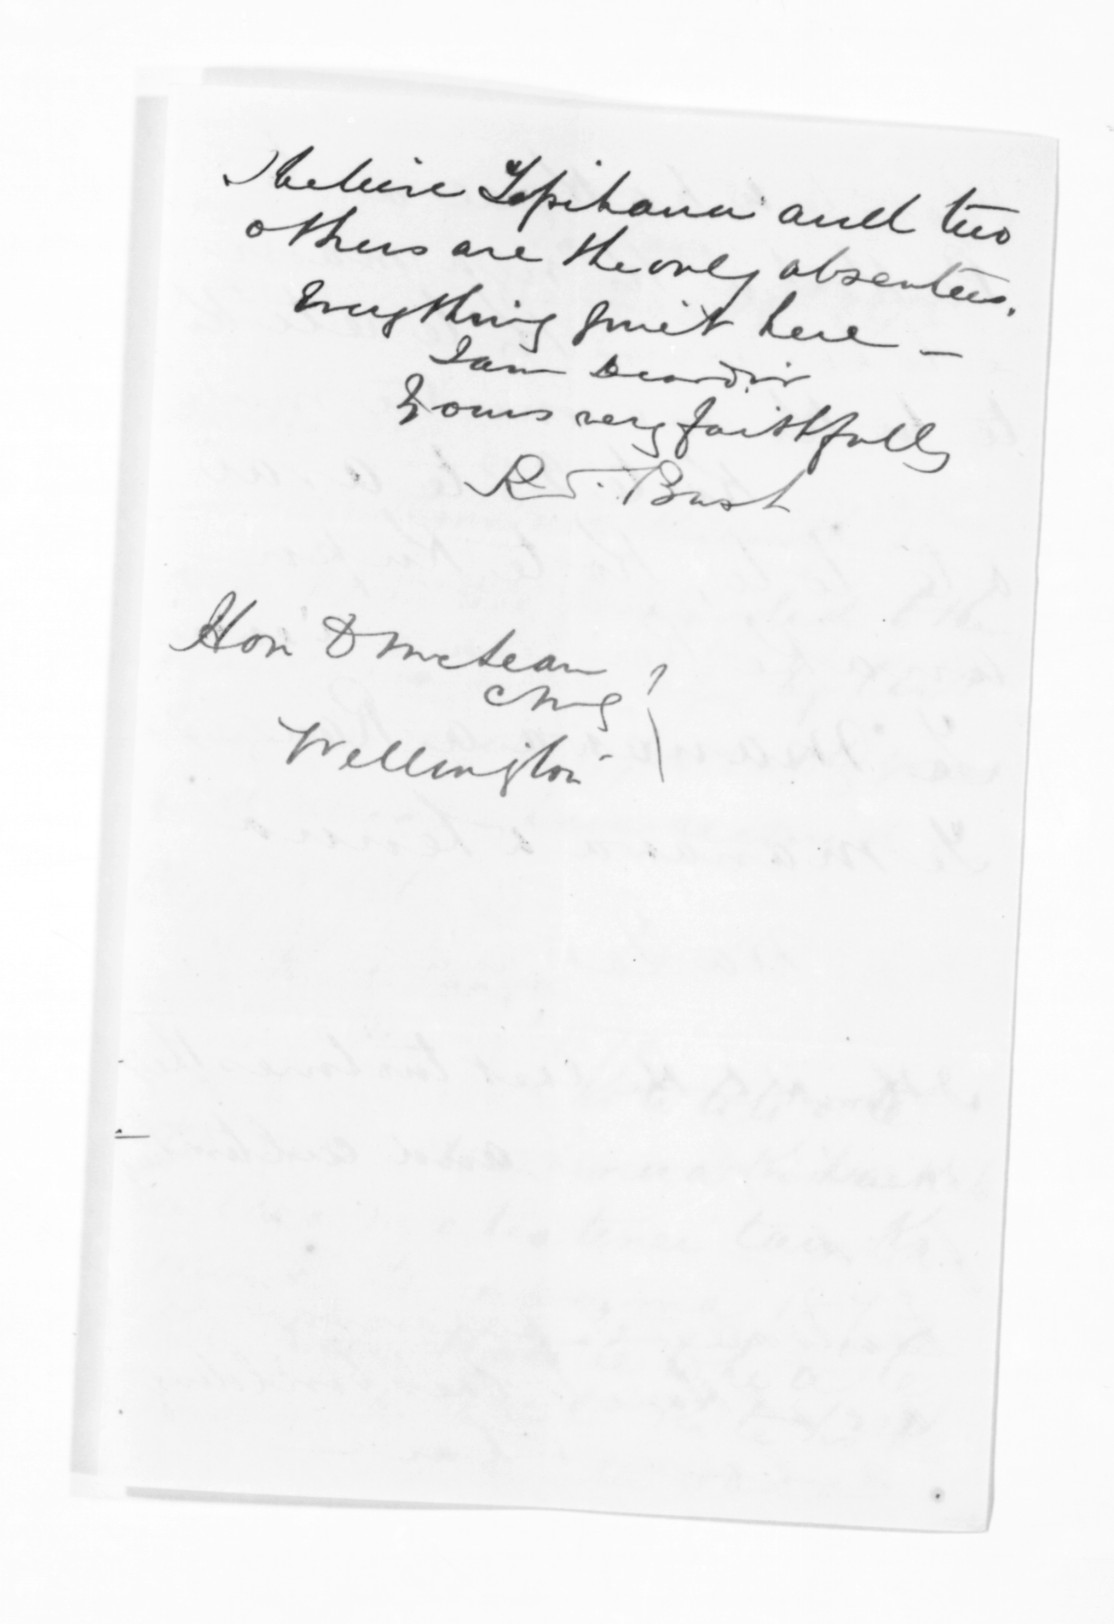 Tepihana and two
others are the only absentees.
Everything quiet here —
I am Dear Sir
Yours very faithfully
R. S. Bush
Hon D McLean
CMG
Wellington